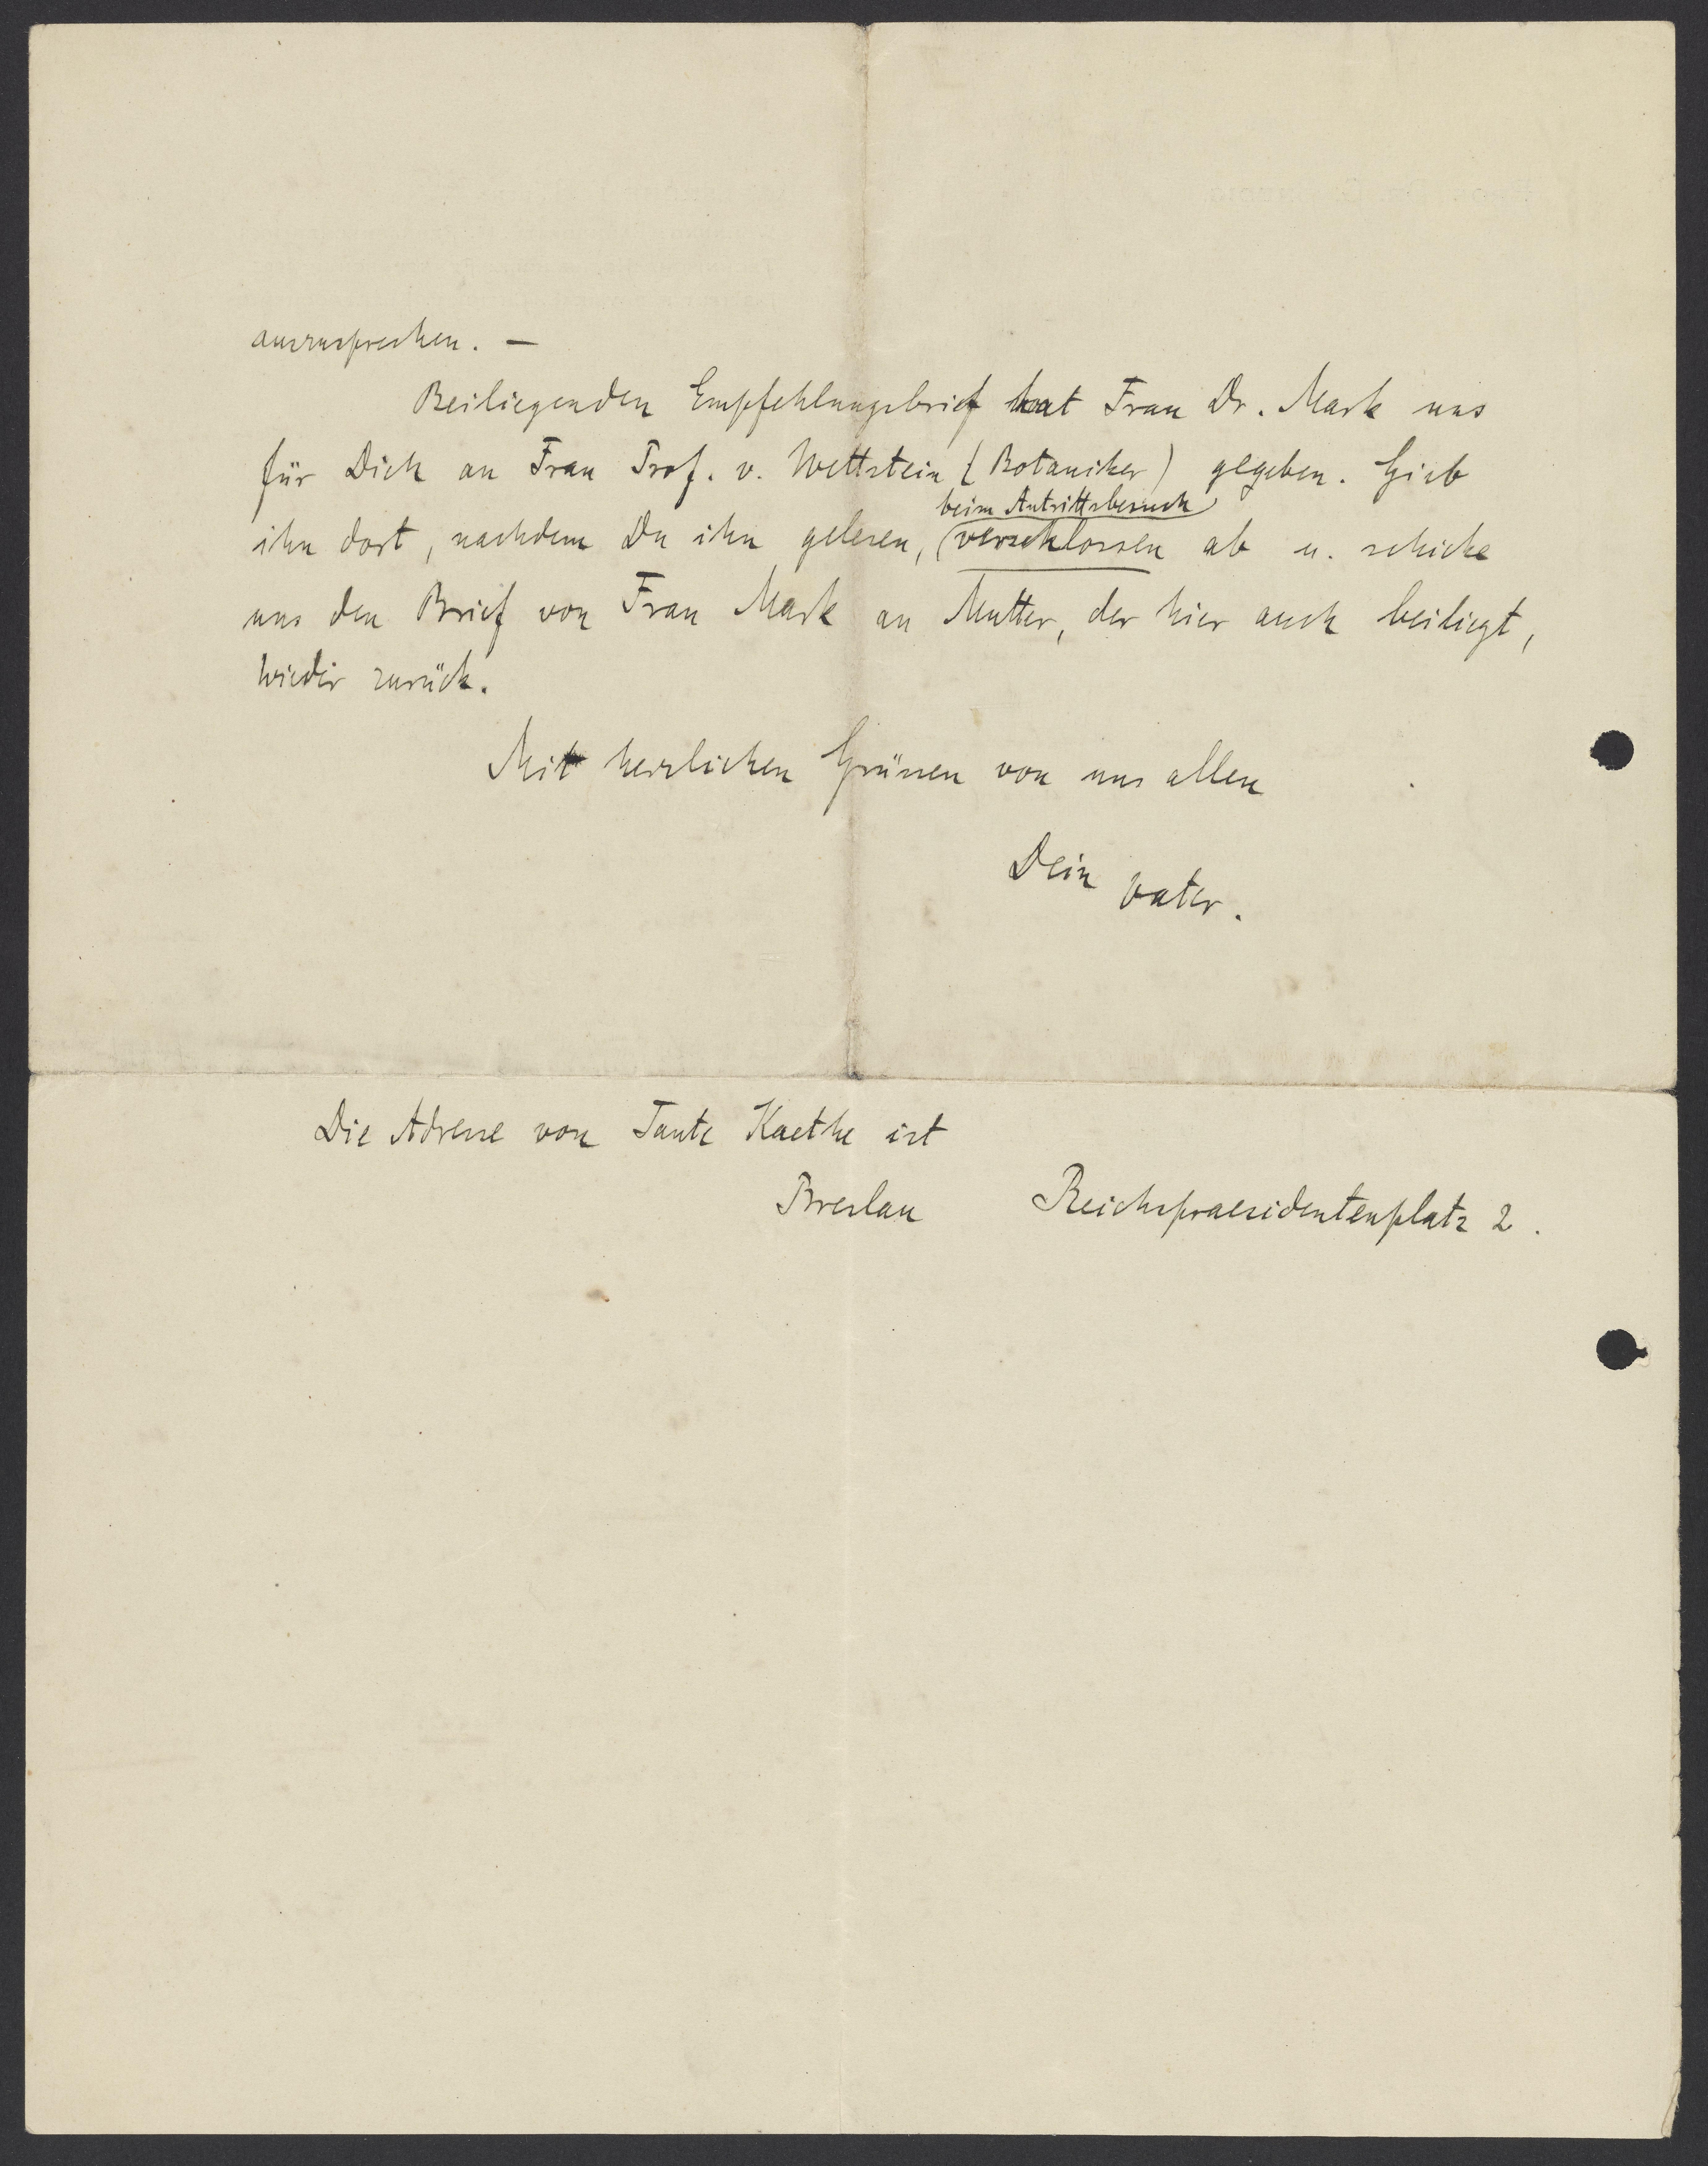 auszusprechen. —
Beiliegenden Empfehlungsbrief hat Frau Dr. Mark uns
für Dich an Frau Prof. v. Wettstein (Botaniker) gegeben. Gieb
beim Antrittsbesuch
ihn dort, nachdem Du ihn gelesen, verschlossen ab u. schicke
uns den Brief von Frau Mark an Mutter, der hier auch beiliegt,
wieder zurück.
Mit herzlichen Grüssen von uns allen
Dein Vater.
Die Adresse von Tante Kaethe ist
Breslau Reichspraesidentenplatz 2.